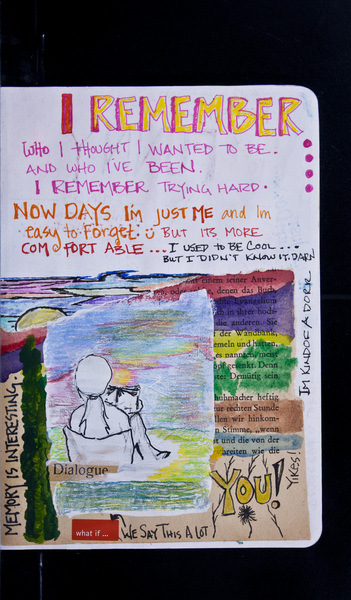 I REMEMBER
WHO I THOUGHT I WANTED TO BE.
AND WHO I'VE BEEN.
I REMEMBER TRYING HARD.
NOW DAYS I'm JUST ME and Im
easy to Forget. BUT ITS MORE
COMFORTABLE ... I USED TO BE COOL....
BUT I DIDN'T KNOW IT. DARN
IM KINDOF A DORK
auf einem seiner Arbeits
denen das Buch
Evangelium
in ihrer
die anderen. Sie
der Wandbank,
emeln und hatten,
es nannten, meist
pf gesenkt. Denn
ste: Demütig sein
huhmacher heftig
zur rechten Stunde
llen wir hinkom-
n Stimme, „wenn
st und die von der
areiten wie die
MEMORY IS INTERESTING.
Dialogue
YOU!
Yikes!
what if ...
WE SAY THIS A LOT